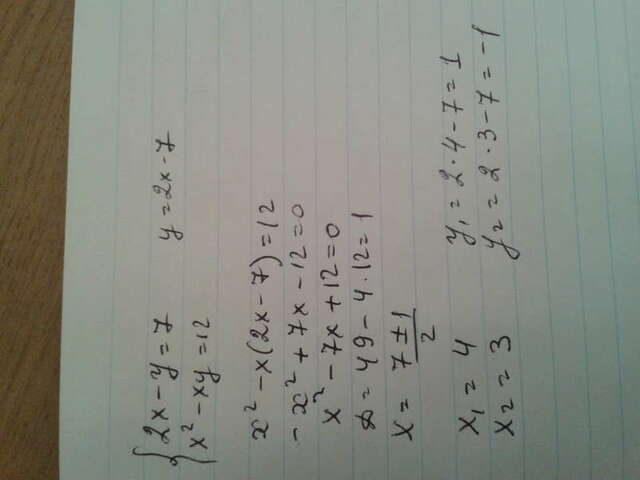 { 2x - y = 7   y = 2x - 7
x² - xy = 12
x² - x(2x - 7) = 12
- x² + 7x - 12 = 0
x² - 7x + 12 = 0
D = 49 - 4 · 12 = 1
x = (7 ± 1)/2
x₁ = 4   y₁ = 2 · 4 - 7 = 1
x₂ = 3   y₂ = 2 · 3 - 7 = -1